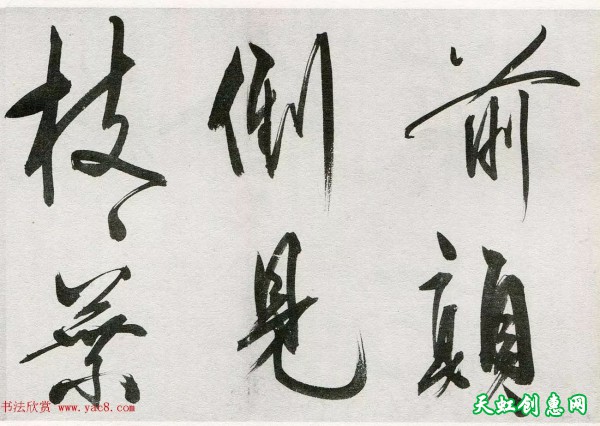 前顛
倒見
枝〻葉
书法欣赏 www.yac8.com
天虹创惠网